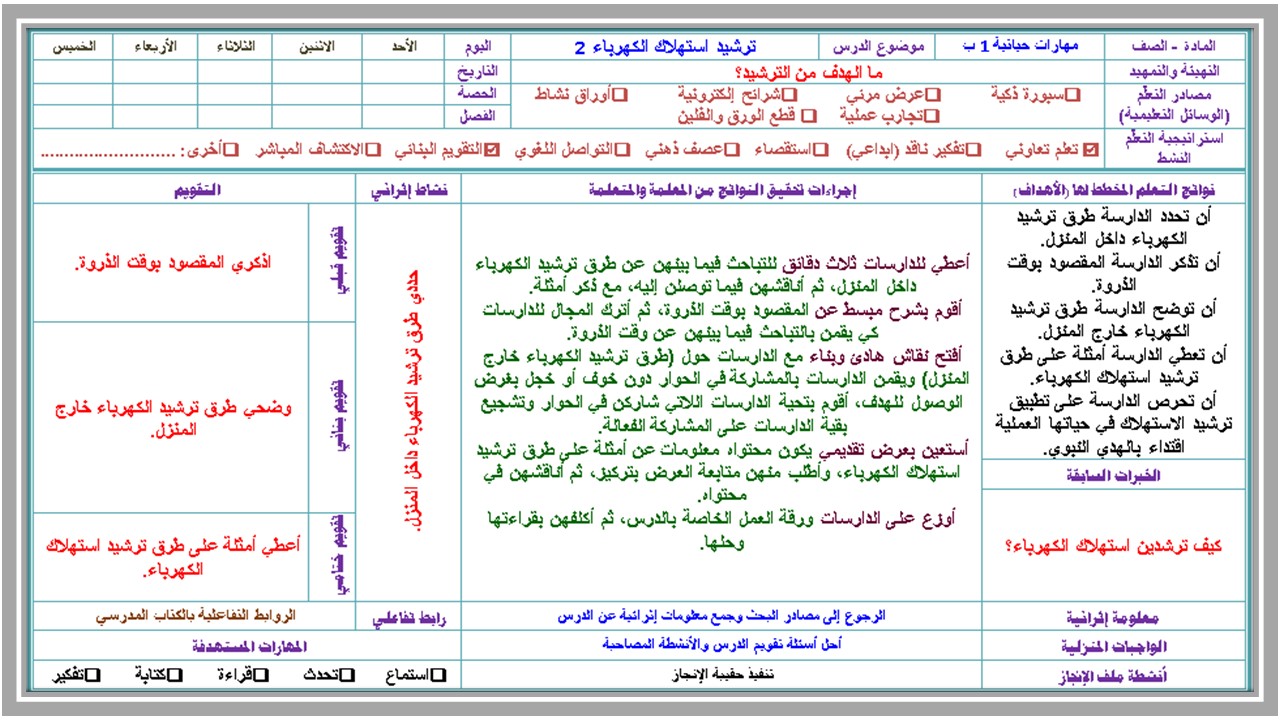 المادة - الصف
مهارات حياتية 1 ب
موضوع الدرس
ترشيد استهلاك الكهرباء 2
اليوم
الأحد
الاثنين
الثلاثاء
الأربعاء
الخميس
التهيئة والتمهيد
ما الهدف من الترشيد؟
التاريخ
مصادر التعلّم
(الوسائل التعليمية)
❑سبورة ذكية ❑عرض مرئي ❑شرائح إلكترونية ❑أوراق نشاط
❑تجارب عملية ❑ قطع الورق والفلين
الحصة
الفصل
استراتيجية التعلّم
النشط
☑ تعلم تعاوني ❑تفكير ناقد (ابداعي) ❑استقصاء ❑عصف ذهني ❑التواصل اللغوي ☑التقويم البنائي ❑الاكتشاف المباشر ❑أخرى: ..........................
نواتج التعلم المخطط لها (الأهداف)
إجراءات تحقيق النواتج من المعلمة والمتعلمة
نشاط إثرائي
التقويم
أن تحدد الدارسة طرق ترشيد
الكهرباء داخل المنزل.
أن تذكر الدارسة المقصود بوقت
الذروة.
أن توضح الدارسة طرق ترشيد
الكهرباء خارج المنزل.
أن تعطي الدارسة أمثلة على طرق
ترشيد استهلاك الكهرباء.
أن تحرص الدارسة على تطبيق
ترشيد الاستهلاك في حياتها العملية
اقتداء بالهدي النبوي.
الخبرات السابقة
كيف ترشدين استهلاك الكهرباء؟
أعطي للدارسات ثلاث دقائق للتباحث فيما بينهن عن طرق ترشيد الكهرباء
داخل المنزل، ثم أناقشهن فيما توصلن إليه، مع ذكر أمثلة.
أقوم بشرح مبسط عن المقصود بوقت الذروة، ثم أترك المجال للدارسات
كي يقمن بالتباحث فيما بينهن عن وقت الذروة.
أفتح نقاش هادئ وبناء مع الدارسات حول (طرق ترشيد الكهرباء خارج
المنزل) ويقمن الدارسات بالمشاركة في الحوار دون خوف أو خجل بغرض
الوصول للهدف، أقوم بتحية الدارسات اللاتي شاركن في الحوار وتشجيع
بقية الدارسات على المشاركة الفعالة.
أستعين بعرض تقديمي يكون محتواه معلومات عن أمثلة على طرق ترشيد
استهلاك الكهرباء، وأطلب منهن متابعة العرض بتركيز، ثم أناقشهن في
محتواه.
أوزع على الدارسات ورقة العمل الخاصة بالدرس، ثم أكلفهن بقراءتها
وحلها.
حددي طرق ترشيد الكهرباء داخل المنزل.
تقويم قبلي
اذكري المقصود بوقت الذروة.
تقويم بنائي
وضحي طرق ترشيد الكهرباء خارج
المنزل.
تقويم ختامي
أعطي أمثلة على طرق ترشيد استهلاك
الكهرباء.
معلومة إثرائية
الرجوع إلى مصادر البحث وجمع معلومات إثرائية عن الدرس
رابط تفاعلي
الروابط التفاعلية بالكتاب المدرسي
الواجبات المنزلية
أحل أسئلة تقويم الدرس والأنشطة المصاحبة
المهارات المستهدفة
أنشطة ملف الإنجاز
تنفيذ حقيبة الإنجاز
❑استماع ❑تحدث ❑قراءة ❑كتابة ❑تفكير